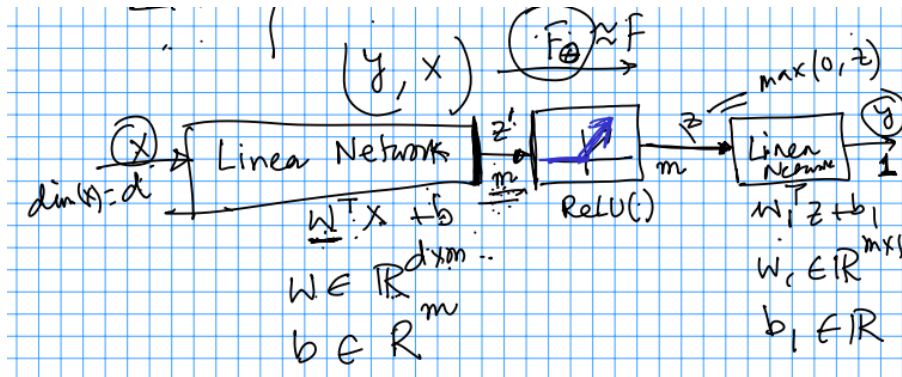 (y, x) F_θ ≈ F
max(0, z)
x Linea Network z' z Linea Network y
dim(x)=d m m 1
W^T x + b ReLU() W_1^T z + b_1
W ∈ ℝ^{d×m} W_1 ∈ ℝ^{m×1}
b ∈ ℝ^m b_1 ∈ ℝ